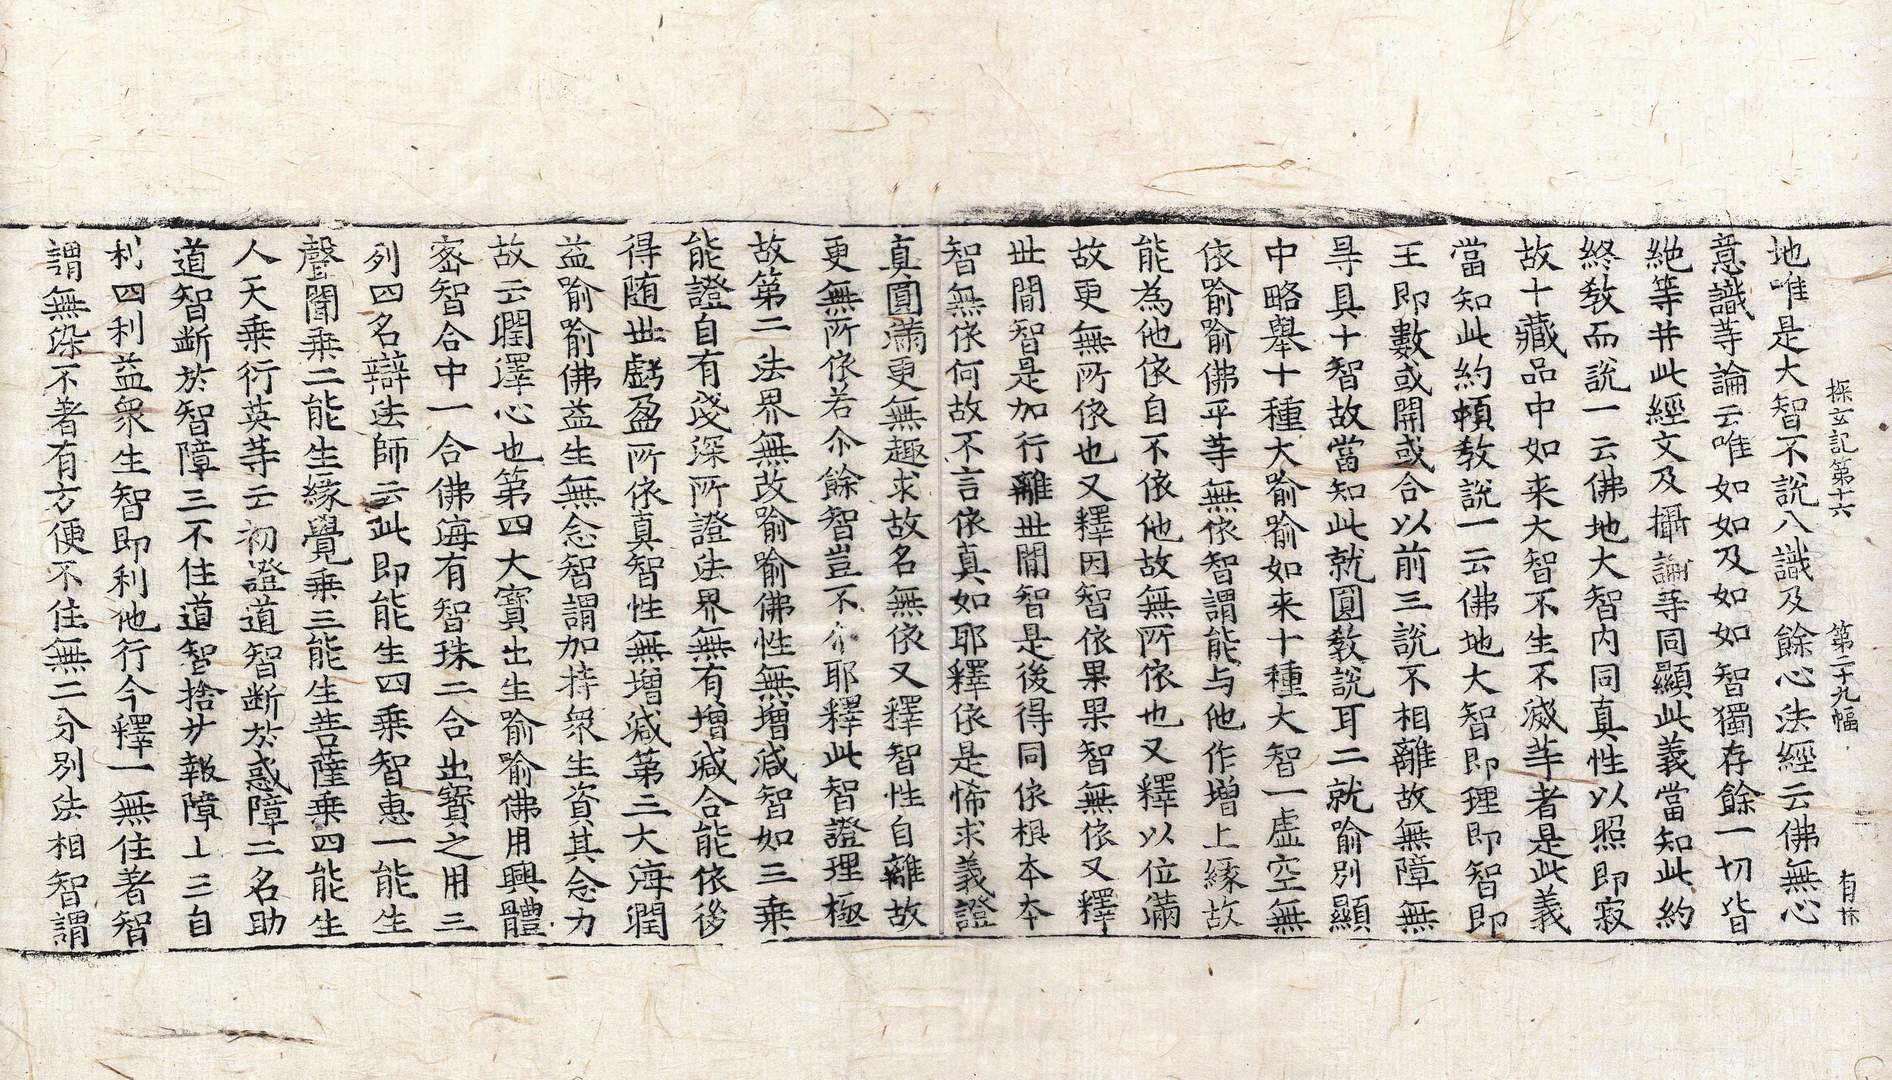 探玄記第十六 第二十九幅 有休
地唯是大智不說八識及餘心法經云佛無心
意識等論云唯如如及如如智獨存餘一切皆
絕等并此經文及攝論等同顯此義當知此約
終教而說一云佛地大智內同真性以照即寂
故十藏品中如来大智不生不滅等者是此義
當知此約頓教說一云佛地大智即理即智即
王即數或開或合以前三說不相離故無障無
㝵具十智故當知此就圓教說耳二就喻別顯
中略舉十種大喻喻如来十種大智一虛空無
依喻喻佛平等無依智謂能与他作增上緣故
能為他依自不依他故無所依也又釋以位滿
故更無所依也又釋因智依果果智無依又釋
世間智是加行離世間智是後得同依根本本
智無依何故不言依真如耶釋依是悕求義證
真圓滿更無趣求故名無依又釋智性自離故
更無所依若尒餘智豈不尒耶釋此智證理極
故第二法界無改喻喻佛性無增減智如三乘
能證自有淺深所證法界無有增減合能依後
得随世虧盈所依真智性無增減第三大海潤
益喻喻佛益生無念智謂加持眾生資其念力
故云潤澤心也第四大寶出生喻喻佛用興體
密智合中一合佛海有智珠二合出寶之用三
列四名辯法師云此即能生四乘智惠一能生
聲聞乘二能生緣覺乘三能生菩薩乘四能生
人天乘行英等云初證道智断於惑障二名助
道智断於智障三不住道智捨廾報障上三自
利四利益眾生智即利他行今釋一無住著智
謂無染不著有方便不住無二分別法相智謂